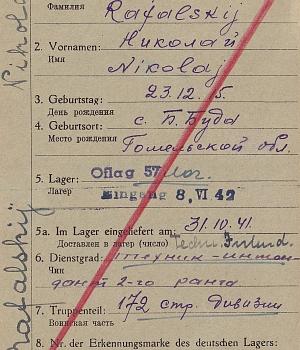 Фамилия Rafalskij
2. Vornamen: Николай
Имя Nikolaj
3. Geburtstag: 23.12.15.
День рождения
4. Geburtsort: с. Б. Буда
Место рождения Гомельской обл.
5. Lager: Oflag 57
Лагер Eingang 8. VI 42
5a. Im Lager eingeliefert am: 31.10.41.
Доставлен в лагер (число) Techn. Intend.
6. Dienstgrad: Техник-интен-
Чин дант 2-го ранга
7. Truppenteil: 172 стр. дивизии
Воинская часть
8. Nr. der Erkennungsmarke des deutschen Lagers:
Rafalskij
Nikola